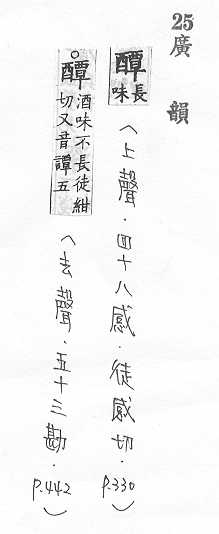 25廣韻
醰長味（上聲．四十八感．徒感切．p.330）
醰酒味不長徒紺切又音譚五（去聲．五十三勘．p.442）